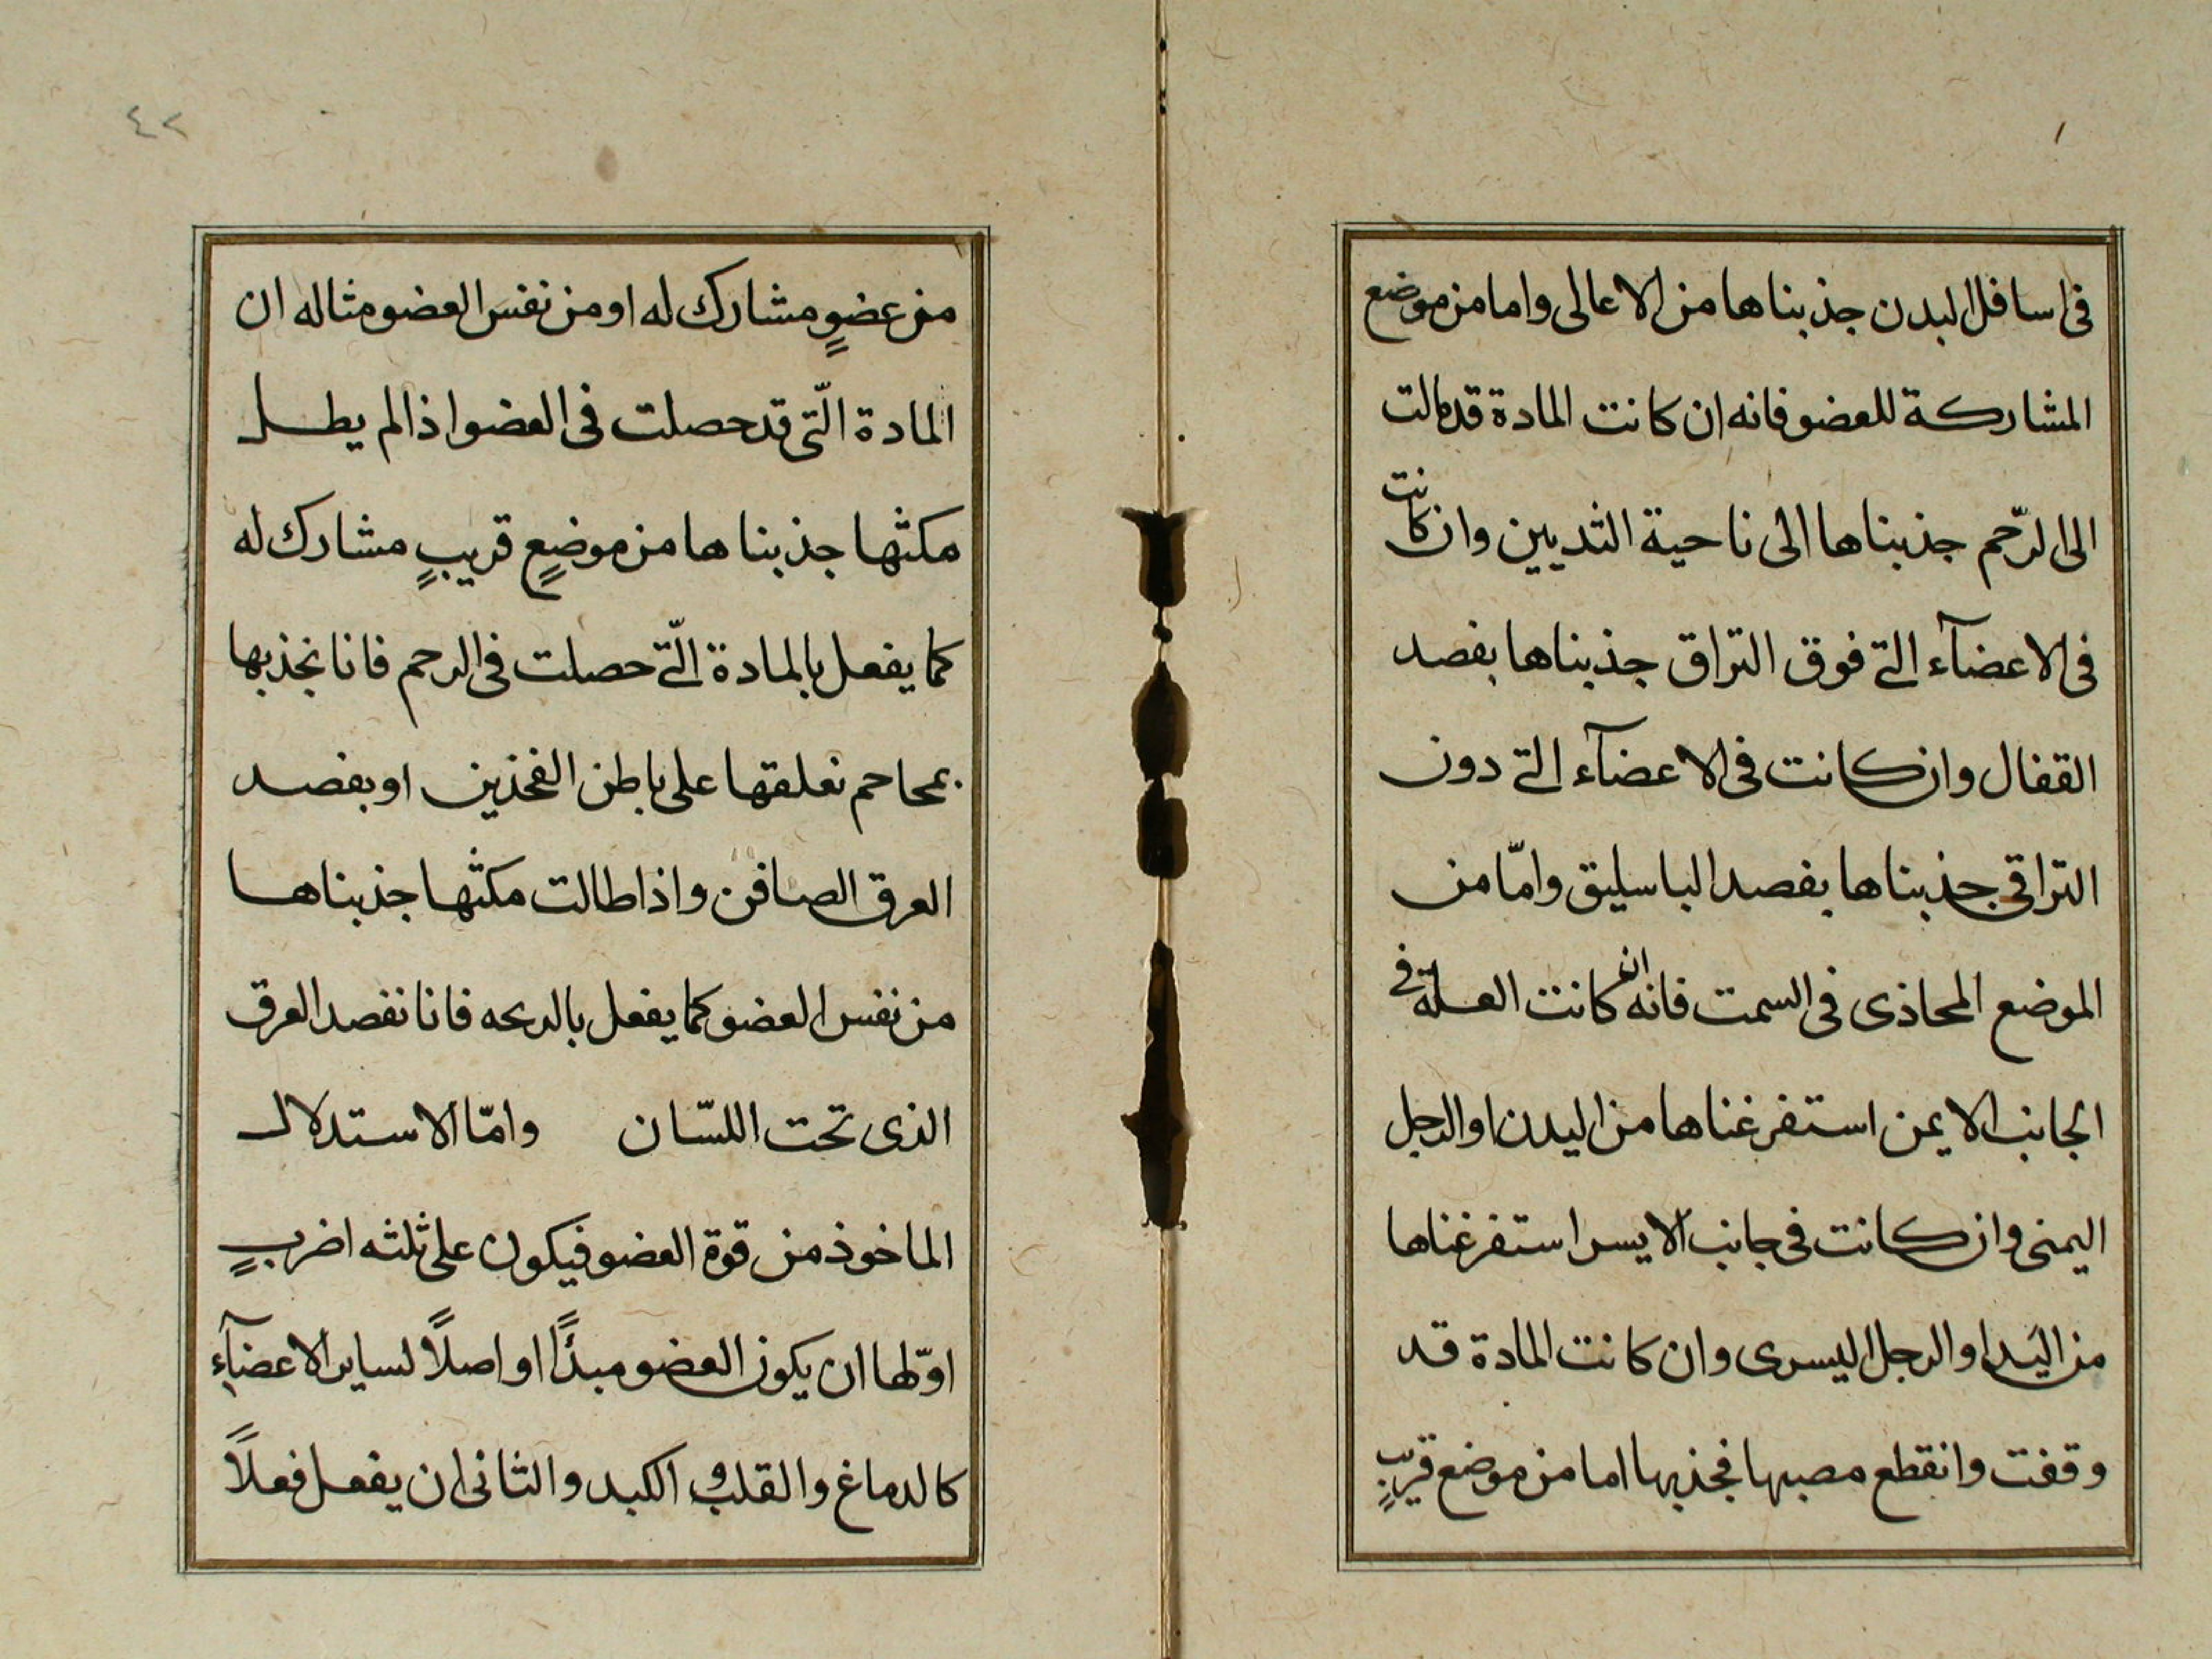 فى اسافل البدن جذبناها من الاعالى واما من موضع
المشاركة للعضو فانه ان كانت المادة قد مالت
الى الرّحم جذبناها الى ناحية الثديين وان كانت
فى الاعضآء التى فوق التراق جذبناها بفصد
القفال وان كانت فى الاعضآء التى دون
التراقى جذبناها بفصد الباسليق وامّا من
الموضع المحاذى فى السمت فانه ان كانت العلة فى
الجانب الايمن استفرغناها من اليدن او الرجل
اليمنى وان كانت فى جانب الايسر استفرغناها
من اليَد او الرجل اليسرى وان كانت المادة قد
وقفت وانقطع مصبها فجذبها اما من موضع قريبٍ
٤٢
من عضوٍ مشارك له او من نفس العضو مثاله ان
المادة الّتى قد حصلت فى العضو اذا لم يطل
مكثها جذبناها من موضعٍ قريبٍ مشارك له
كما يفعل بالمادة الّتى حصلت فى الرحم فانا نجذبها
بمحاحم نعلقها على باطن الفخذين او بفصد
العرق الصافن واذا طالت مكثها جذبناها
من نفس العضو كما يفعل بالدبحه فانا نفصد العرق
الذى تحت اللسّان وامّا الاستدلال
الماخوذ من قوة العضو فيكون على ثلثه اضربٍ
اوّلها ان يكون العضو مبدًا او اصلاً لساير الاعضآء
كالدماغ والقلب و الكبد والثانى ان يفعل فعلاً